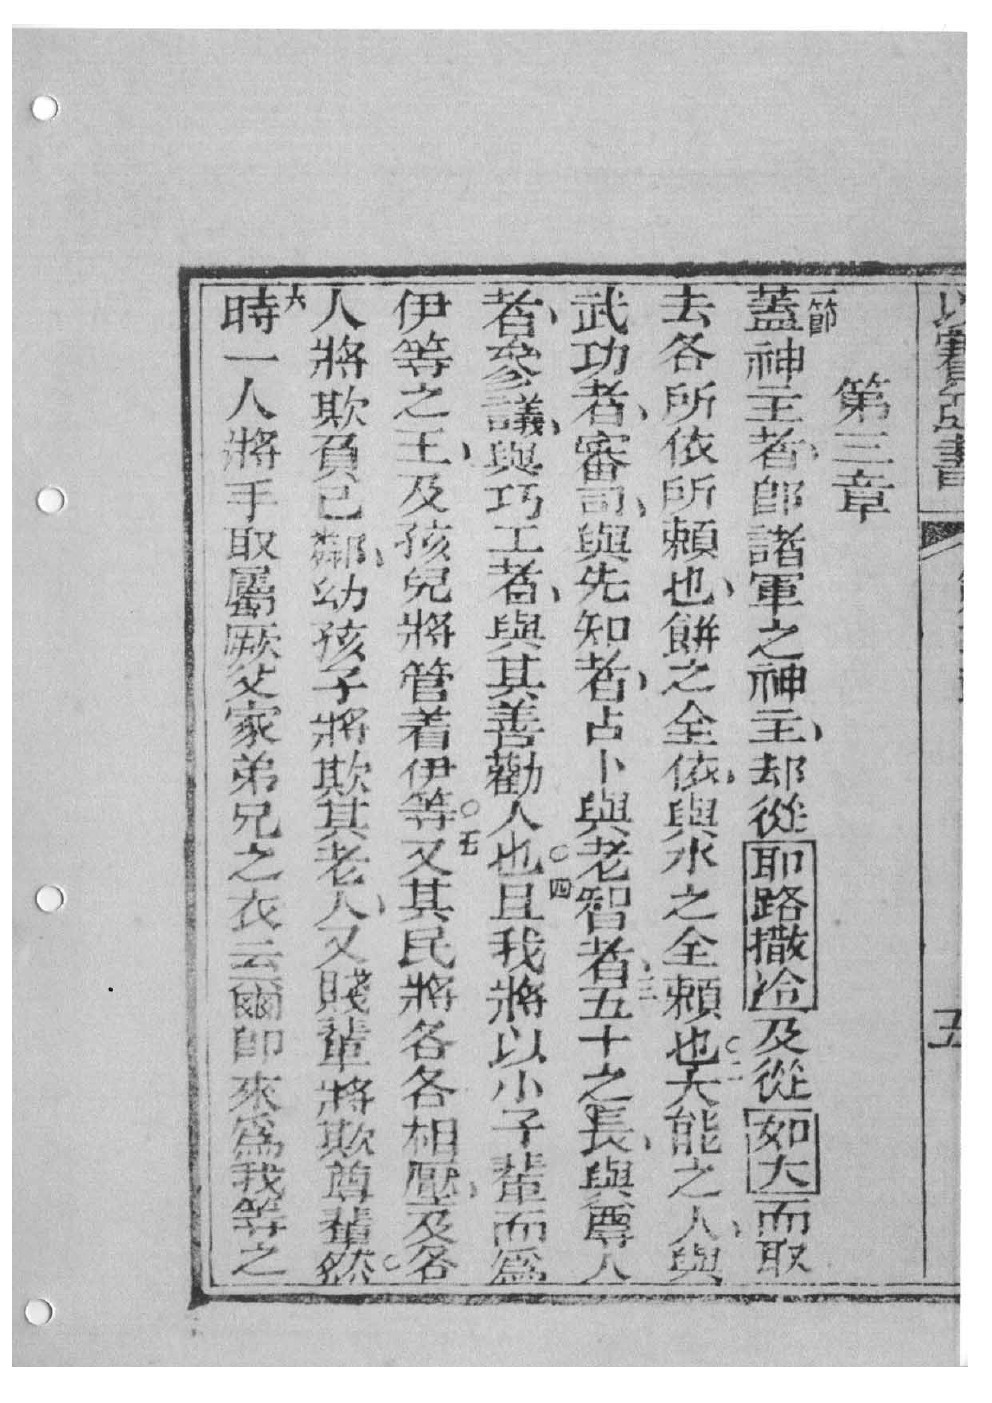 第三章
一節
蓋神主者即諸軍之神主却從耶路撒冷及從如大而取
去各所依所賴也餅之全依與水之全賴也○二大能之人與
武功者審司與先知者占卜與老智者三五十之長與尊人
者參議與巧工者與其善勸人也○四且我將以小子輩而為
伊等之王及孩兒將管着伊等○五又其民將各各相壓及各
人將欺負己鄰幼孩子將欺其老人又賤輩將欺尊輩然○
六時一人將手取屬厥父家弟兄之衣云爾即來為我等之
五